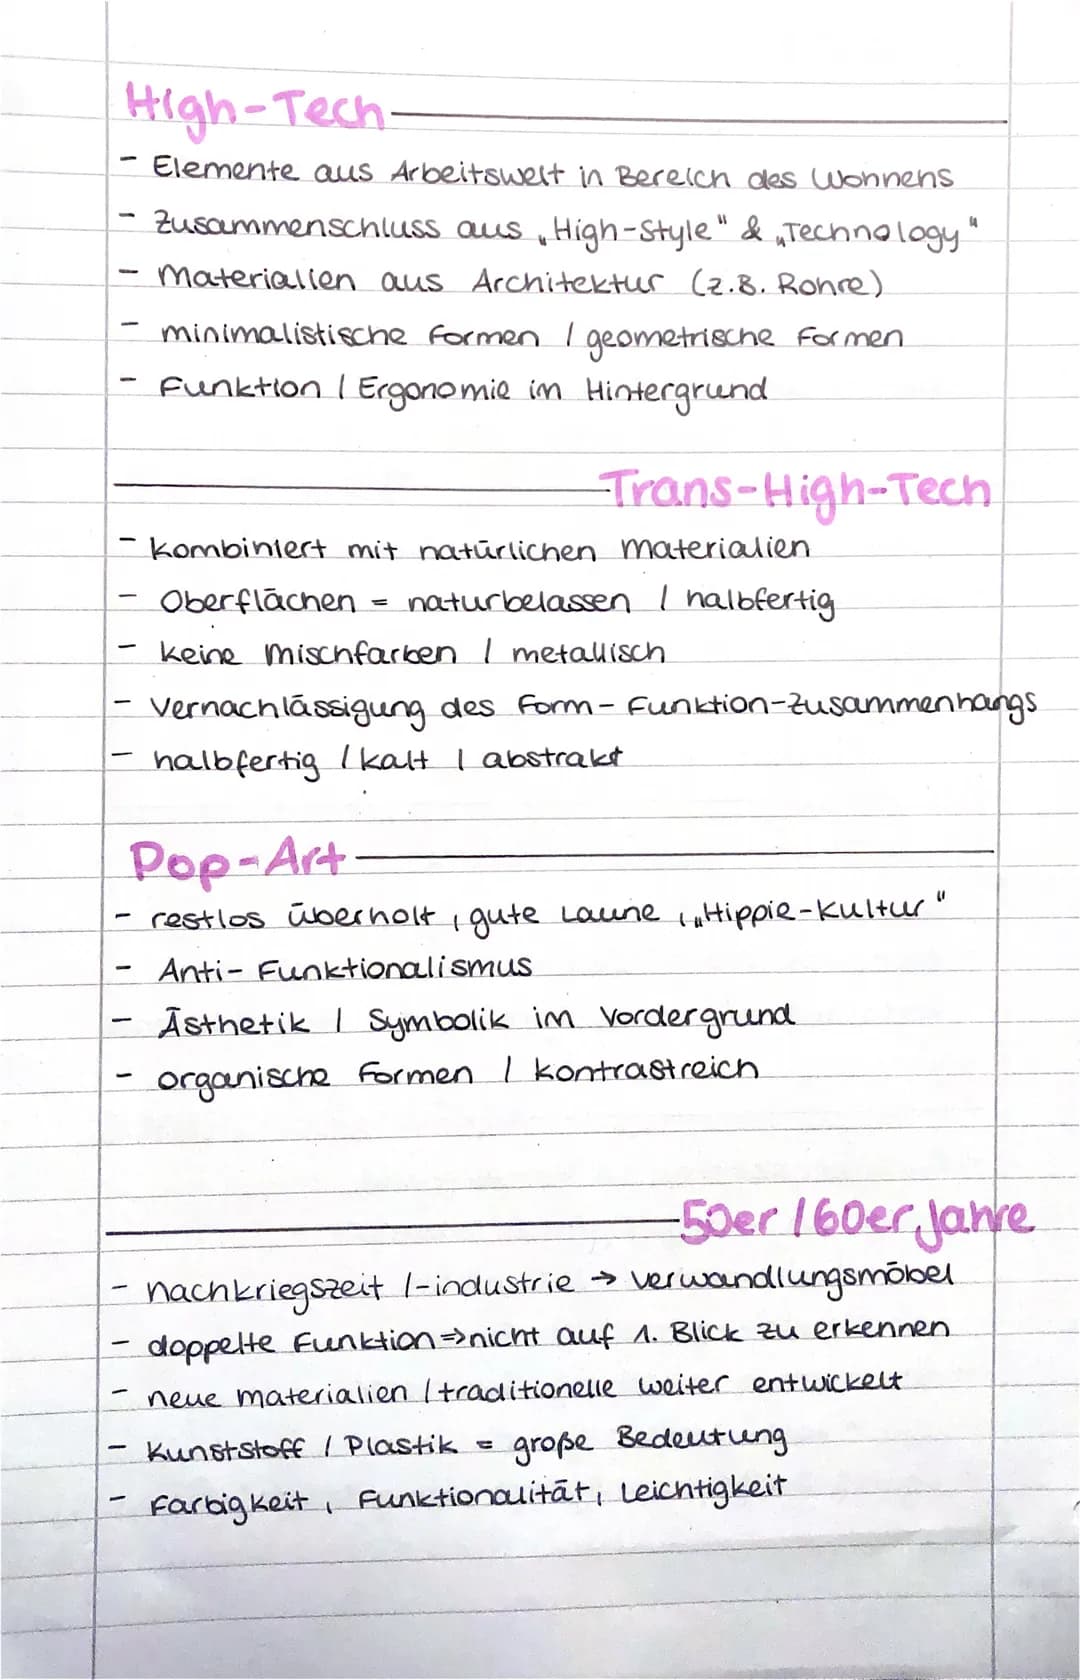 High-Tech
- Elemente aus Arbeitswelt in Bereich des Wohnens
- Zusammenschluss aus „High-Style" & „Technology"
- Materialien aus Architektur (z.B. Rohre)
- minimalistische Formen / geometrische Formen
- Funktion / Ergonomie im Hintergrund
Trans-High-Tech
- kombiniert mit natürlichen Materialien
- Oberflächen = naturbelassen / halbfertig
- keine Mischfarben / metallisch
- Vernachlässigung des Form-Funktion-Zusammenhangs
- halbfertig / kalt / abstrakt
Pop-Art
- restlos überholt, gute Laune, „Hippie-Kultur"
- Anti-Funktionalismus
- Ästhetik / Symbolik im Vordergrund
- organische Formen / kontrastreich
50er/60er Jahre
- Nachkriegszeit /-industrie → Verwandlungsmöbel
- doppelte Funktion => nicht auf 1. Blick zu erkennen
- neue Materialien / traditionelle weiter entwickelt
- Kunststoff / Plastik = große Bedeutung
- Farbigkeit, Funktionalität, Leichtigkeit